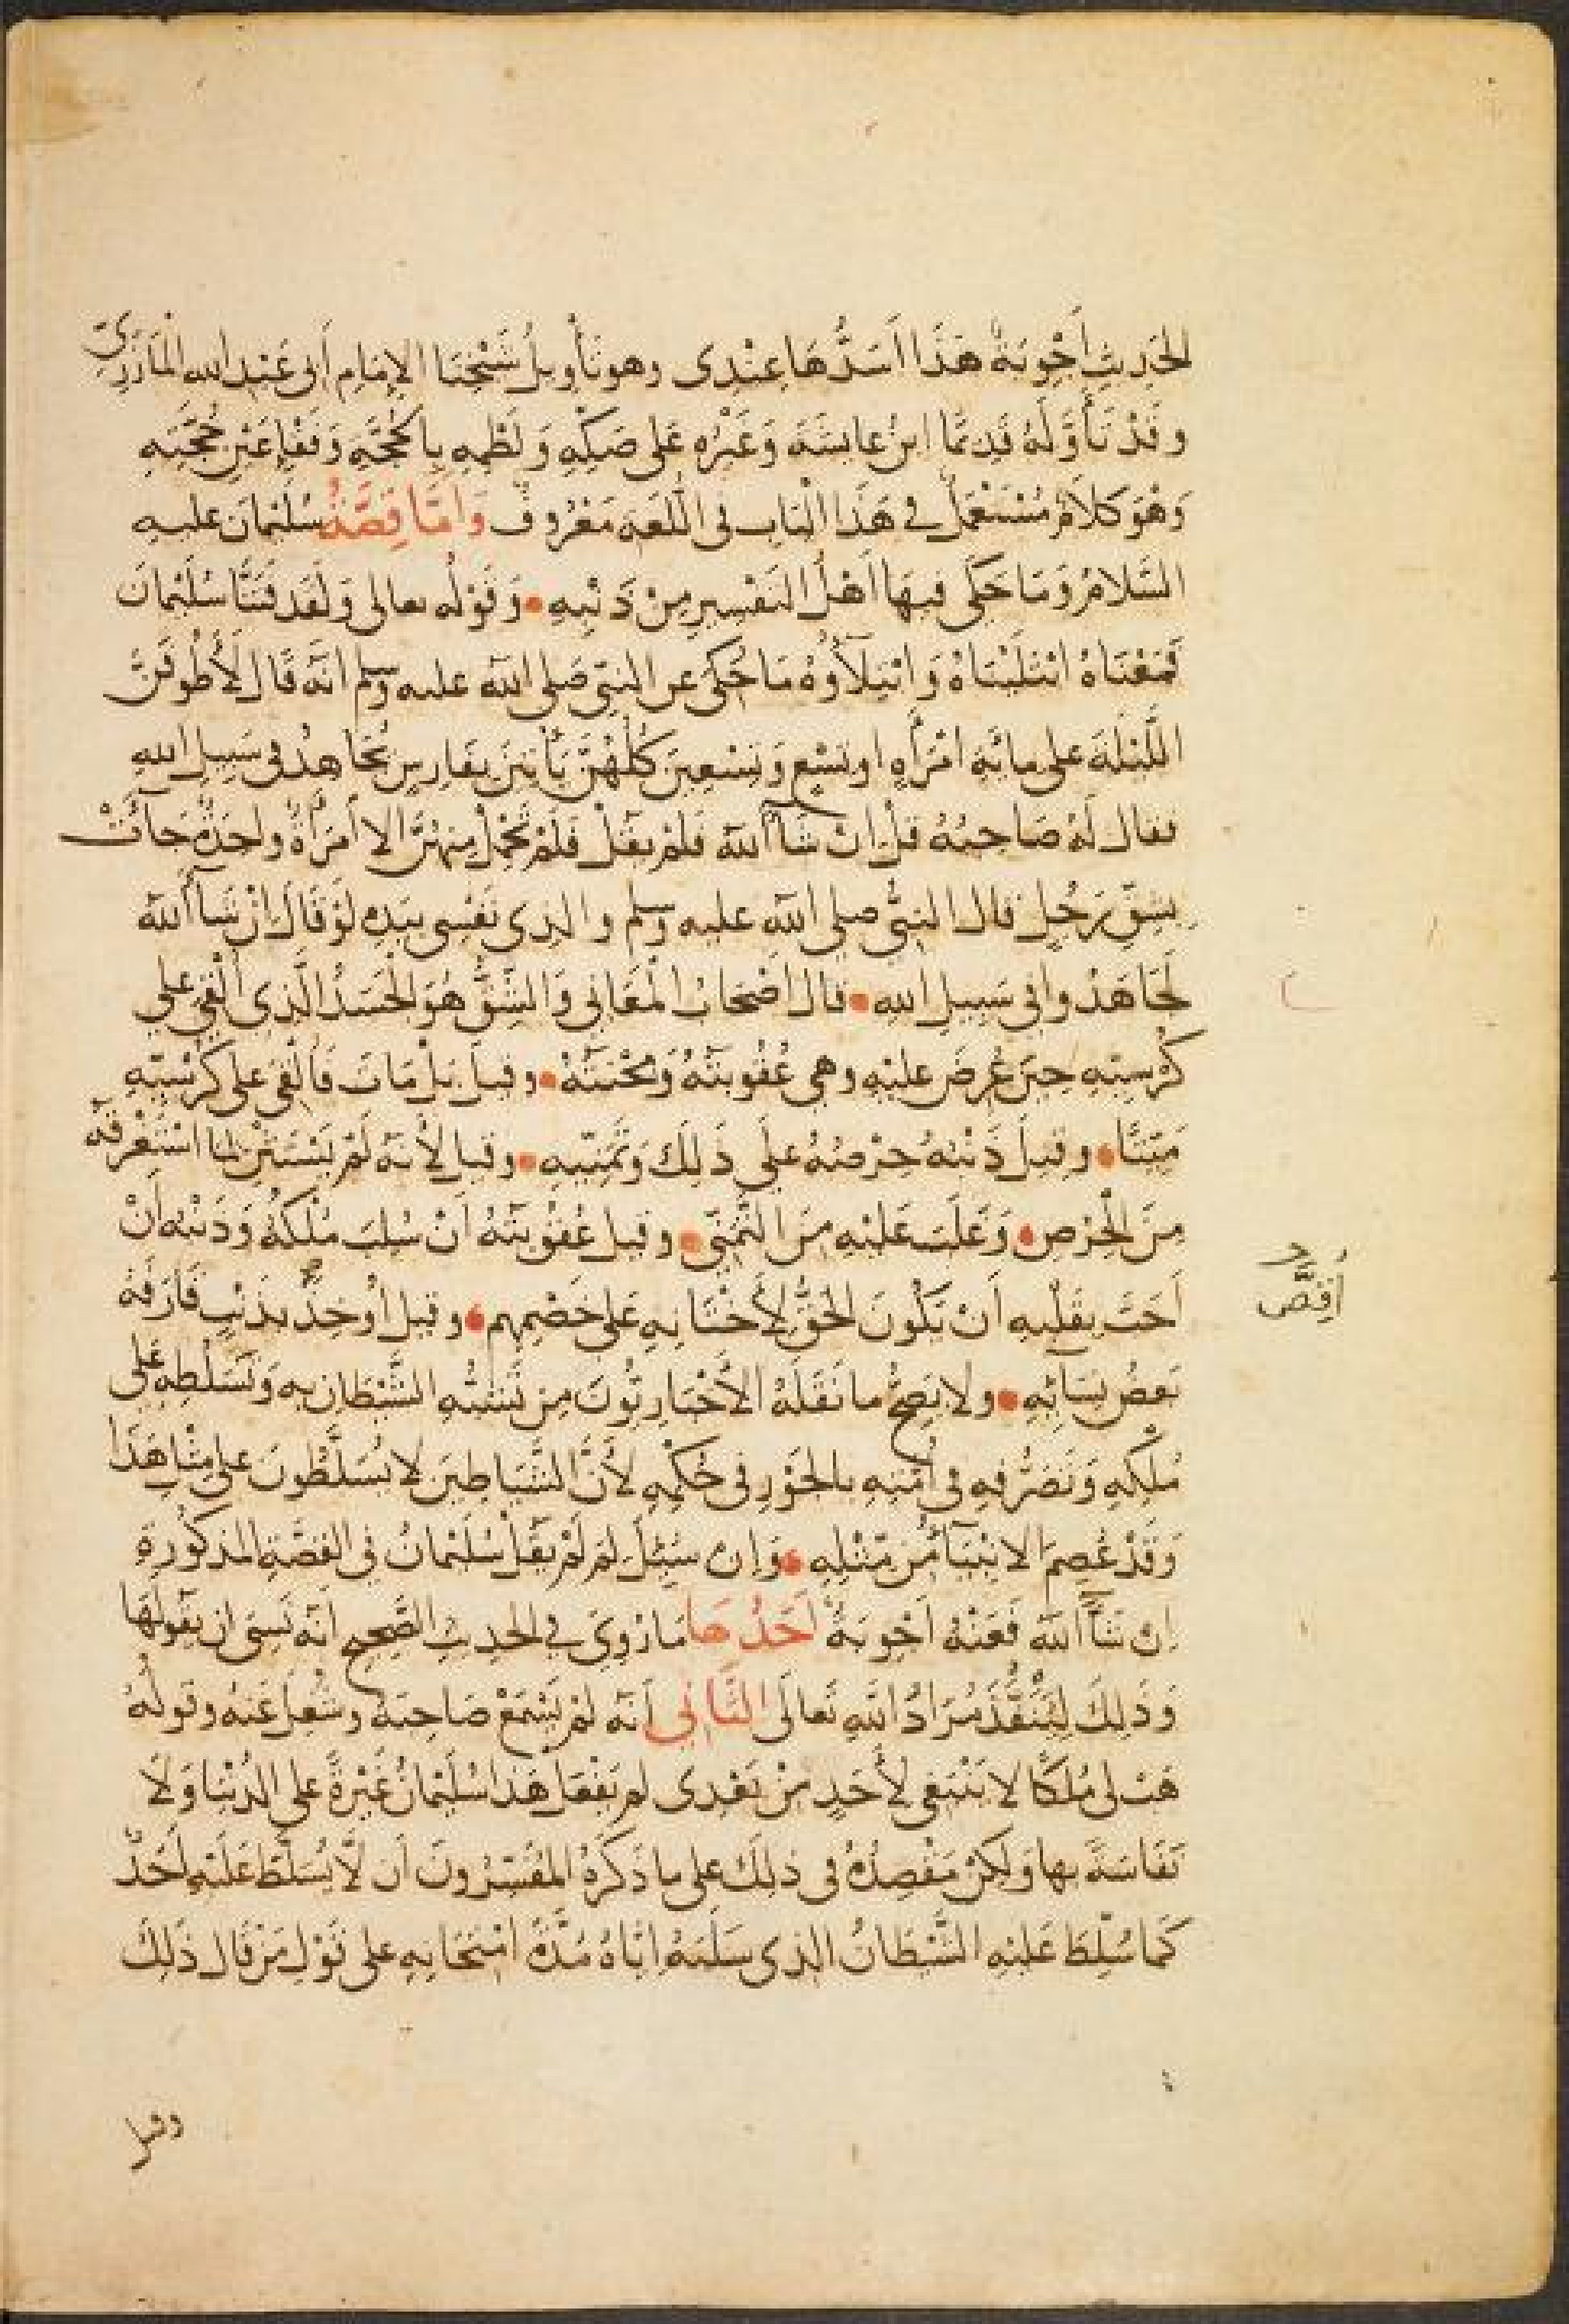 الحَدِيثِ أَجْوِبَةٌ هَذَا أَسَدُّهَا عِنْدِى وهو تَأْوِيلُ شَيْخِنَا الإمَامِ أَبى عَبْدِ الله الْمَازَرِىِّ
وقَدْ تَأَوَّلَهُ قَدِيمًا ابنُ عَايشَةَ وَغَيْرُه عَلى صَكِّهِ وَلَطْمِهِ بِالحُجَّةِ وَفَقْإِ عَيْنِ حُجَّتِهِ
وَهْوَ كَلَامٌ مُسْتَعْمَلٌ فى هَذَا الْبَاب فى اللُّغَةِ مَعْرُوفٌ وَأَمَّا قِصَّةُ سُلَيْمَانَ عليهِ
السَّلَامُ وَمَا حَكَى فِيهَا أَهْلُ التَفْسِيرِ مِنْ ذَنْبِهِ • وَقَوْلُه تعالى وَلَقَد فَتَنَّا سُلَيْمَانَ
فَمَعْنَاهُ ابْتَلَيْنَاهُ وَابْتِلَآؤُهُ مَا حُكِىَ عن النبىّ صَلى الله عليه وسلم انَّه قَالَ لَأَطُوفَنَّ
اللَّيْلَةَ على مِائَةِ امْرَأةٍ او تِسْعٍ وَتِسْعِينَ كُلُّهُنَّ يَأْتِينَ بِفَارِسٍ يُجَاهِدُ فى سَبِيلِ اللهِ
فقال لَهُ صَاحِبُهُ قُلْ إنْ شَآءَ اللهُ فَلَمْ يَقُلْ فَلَمْ تَحْمِلْ مِنهُنَّ إلا امْرَأةٌ واحِدَةٌ جَآءَتْ
بِشِقِّ رَجُلٍ قال النبىُّ صلى الله عليه وسلم والذِى نَفْسِى بيَدِهِ لَوْ قَالَ إنْ شآءَ اللهُ
لَجَاهَدُوا فى سَبِيلِ اللهِ • قال اصْحَابُ الْمَعَانِى وَالشِّقُّ هُوَ الْجَسَدُ الَّذِى أُلْقِىَ على
كُرْسِيّهِ حِينَ عُرِضَ عليْهِ وهى عُقُوبَتُهُ وَمِحْنَتُهُ • وقيلَ بَلْ مَاتَ فَأُلْقِىَ على كُرْسِيّهِ
مَيّتًا • وقيلَ ذَنْبُهُ حِرْصُهُ عَلَى ذَلِكَ وَتَمَنِّيهِ • وقيل لأنّهُ لَمْ يَسْتَثْنِ لما اسْتَغْرَقَهُ
مِنَ الْحِرْصِ • وَغَلَبَ عَلَيْهِ مِنَ التَّمَنِّى • وقيل عُقُوبَتُهُ أَنْ سُلِبَ مُلْكَهُ وَذَنْبُهُ أَنْ
أَحَبَّ بِقَلْبِهِ أَنْ يَكُونَ الحَقُّ لِأَخْتَانِهِ عَلى خَصْمِهِمِ • وقيل أُوخِذَ بذَنْبٍ قَارَفَهُ
بَعضُ نِسَائِهِ • ولا يَصِحُّ ما نَقَلَهُ الأَخْبَارِيُّونَ مِن تَشَبُّهِ الشَّيْطَانِ بِهِ وَتَسَلُّطِهِ عَلَى
مُلْكِهِ وَتَصَرُّفِهِ فى أُمَّتِهِ بالجَوْرِ فى حُكْمِهِ لأنَّ الشَّيَاطِينَ لا يُسَلَّطُونَ على مِثْل هَذَا
وَقَدْ عُصِمَ الانْبِيَآءُ مِن مِثْلِهِ • وَإن سُئِلَ لِمَ لَمْ يَقُلْ سُلَيْمَانُ فى القِصَّةِ المذكُورَةِ
إن شَآءَ الله فَعَنْهُ أَجْوِبَةٌ أَحَدُهَا مَا رُوِىَ فى الحدِيثِ الصَّحِيحِ أنّهُ نَسِىَ ان يَقُولَهَا
وَذَلِكَ لِيَنْفُذَ مُرَادُ اللهِ تَعالَى الثَّانِى أَنّهُ لمْ يَسْمَعْ صَاحِبَهُ وشُغِلَ عَنهُ وقولُهُ
هَبْ لى مُلْكًا لا يَنْبَغِى لِأَحَدٍ مِنْ بَعْدِى لم يَفْعَلْ هَذا سُلَيْمَانُ غَيْرَةً على الدُّنْيَا وَلَا
نَفَاسَةً بها وَلَكِنْ مَقْصِدُهُ فى ذلِكَ على ما ذَكَرَهُ المُفَسّرُونَ أن لَّا يُسَلَّطَ عَلَيْهِ أَحَدٌ
كَمَا سُلِّطَ عَلَيْهِ الشَّيْطَانُ الذِى سَلَبَهُ ايَّاهُ مُدَّةَ امْتِحَانِهِ على قَوْلِ مَنْ قال ذَلِكَ
وقيل